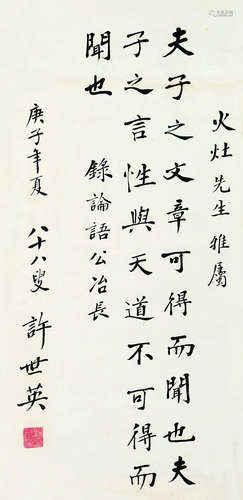 火灶先生雅屬
夫子之文章可得而聞也夫
子之言性與天道不可得而
聞也
錄論語公冶長
庚子年夏
八十八叟許世英